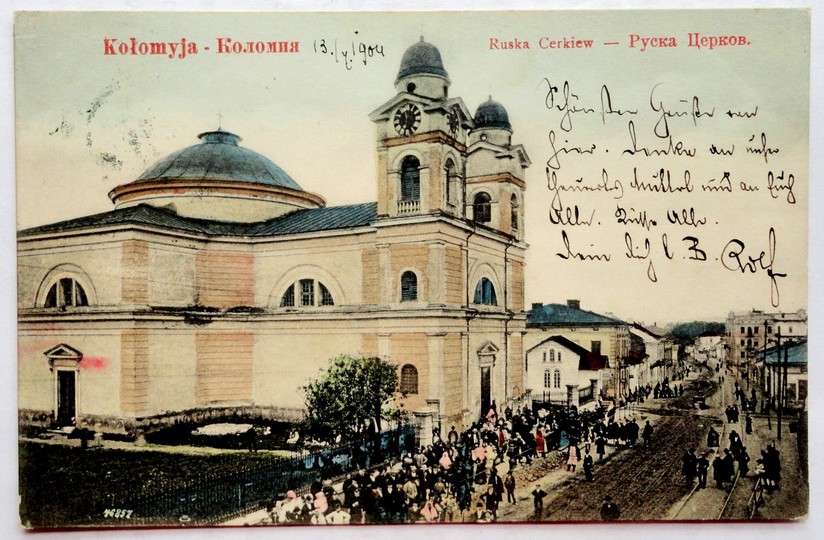 Kołomyja - Коломия 13./V.1904
Ruska Cerkiew — Руска Церков.
Schönsten Gruß von
hier. Denke an unser
theuerstes Muttel und an Euch
Alle. Küsse Alle.
Dein dich l. B. Rolf
46857